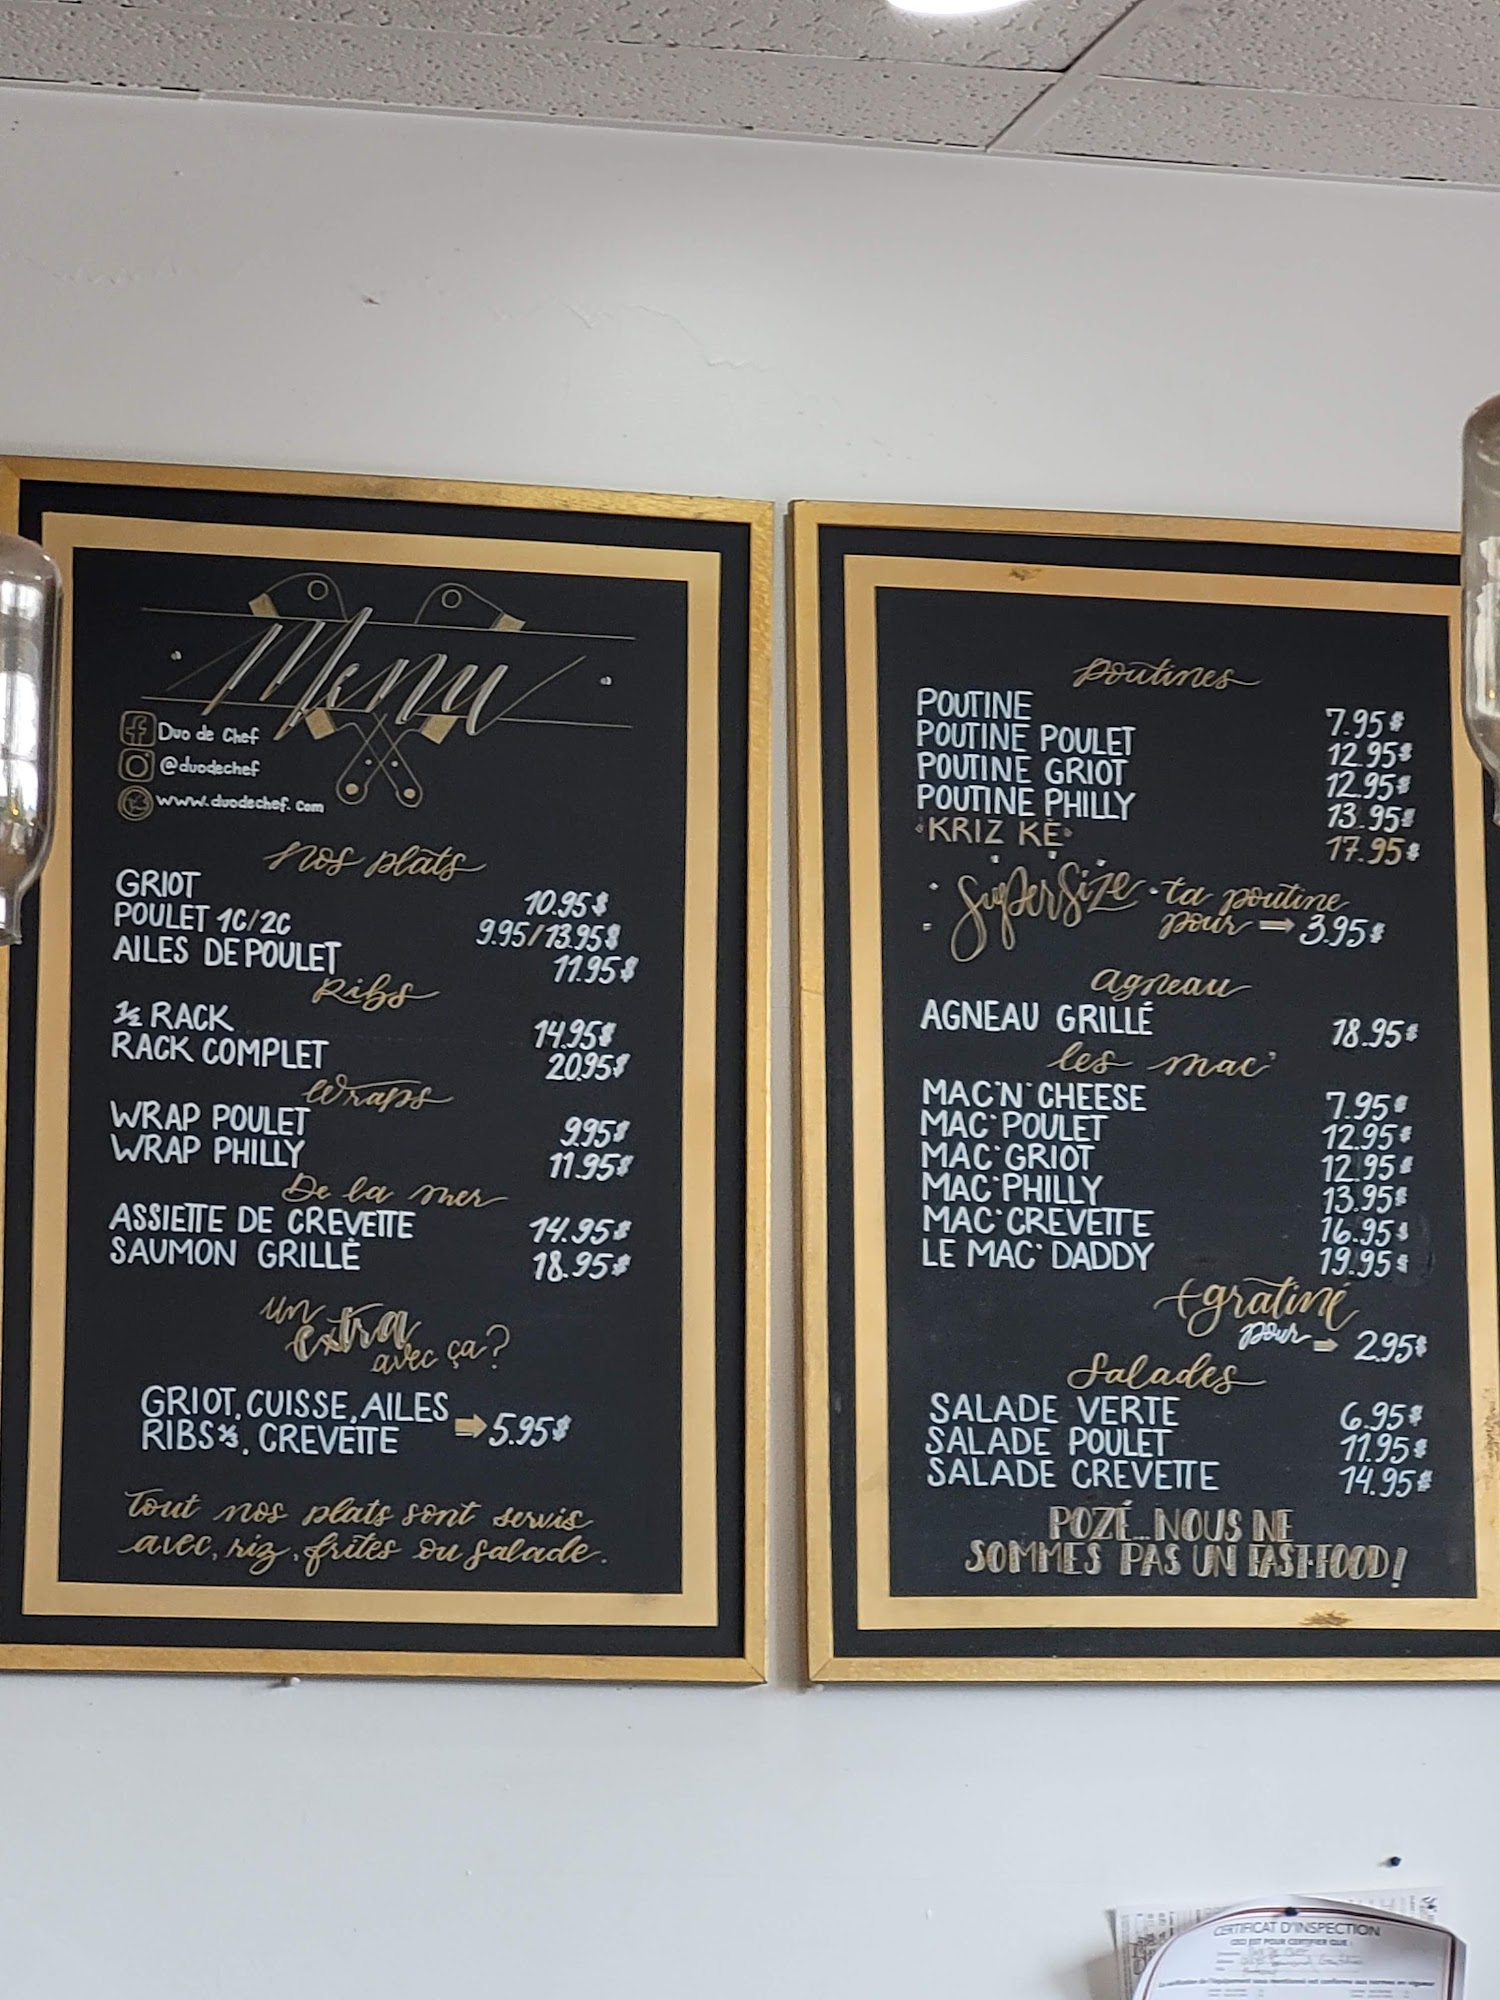 Menu
Duo de Chef
@duodechef
www.duodechef.com
Nos plats
GRIOT 10.95$
POULET 1C/2C 9.95/13.95$
AILES DE POULET 11.95$
Ribs
½ RACK 14.95$
RACK COMPLET 20.95$
Wraps
WRAP POULET 9.95$
WRAP PHILLY 11.95$
De la mer
ASSIETTE DE CREVETTE 14.95$
SAUMON GRILLÉ 18.95$
un
extra
avec ça?
GRIOT, CUISSE, AILES
RIBS ⅓, CREVETTE ➡ 5.95$
Tout nos plats sont servis
avec, riz, frites ou salade.
Poutines
POUTINE 7.95$
POUTINE POULET 12.95$
POUTINE GRIOT 12.95$
POUTINE PHILLY 13.95$
"KRIZ KÈ" 17.95$
SuperSize ta poutine
pour ➡ 3.95$
Agneau
AGNEAU GRILLÉ 18.95$
les mac'
MAC'N'CHEESE 7.95$
MAC'POULET 12.95$
MAC'GRIOT 12.95$
MAC'PHILLY 13.95$
MAC'CREVETTE 16.95$
LE MAC'DADDY 19.95$
+gratiné
pour ➡ 2.95$
Salades
SALADE VERTE 6.95$
SALADE POULET 11.95$
SALADE CREVETTE 14.95$
POZÉ... NOUS NE
SOMMES PAS UN FAST-FOOD!
CERTIFICAT D'INSPECTION
CECI EST POUR CERTIFIER QUE :